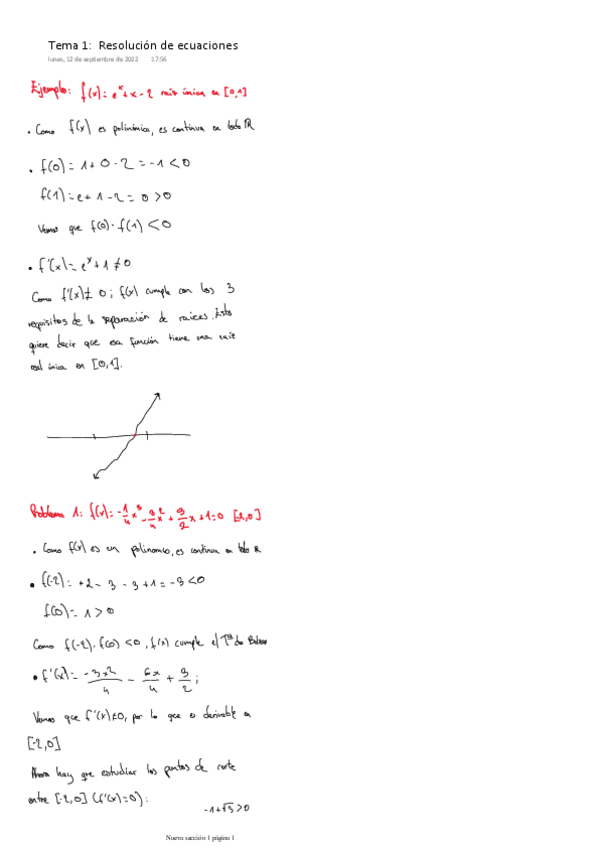 Tema 1: Resolución de ecuaciones
lunes, 12 de septiembre de 2022 17:56
Ejemplo: f(x) = e^x + x - 2 raíz única en [0,1]
• Como f(x) es polinómica, es continua en todo ℝ
• f(0) = 1 + 0 - 2 = -1 < 0
f(1) = e + 1 - 2 = 0 > 0
Vemos que f(0) · f(1) < 0
• f'(x) = e^x + 1 ≠ 0
Como f'(x) ≠ 0; f(x) cumple con los 3
requisitos de la separación de raíces. Esto
quiere decir que esa función tiene una raíz
real única en [0,1].
Problema 1: f(x) = -1/4 x^3 - 3/4 x^2 + 9/2 x + 1 = 0 [-2,0]
• Como f(x) es un polinomio, es continua en todo ℝ
• f(-2) = +2 - 3 - 9 + 1 = -9 < 0
f(0) = 1 > 0
Como f(-2) · f(0) < 0, f(x) cumple el Tª de Bolzano
• f'(x) = -3x^2/4 - 6x/4 + 9/2;
Vemos que f'(x) ≠ 0, por lo que es derivable en
[-2,0]
Ahora hay que estudiar los puntos de corte
entre [-2,0] (f'(x) = 0):
-1+√7 > 0
Nueva sección 1 página 1